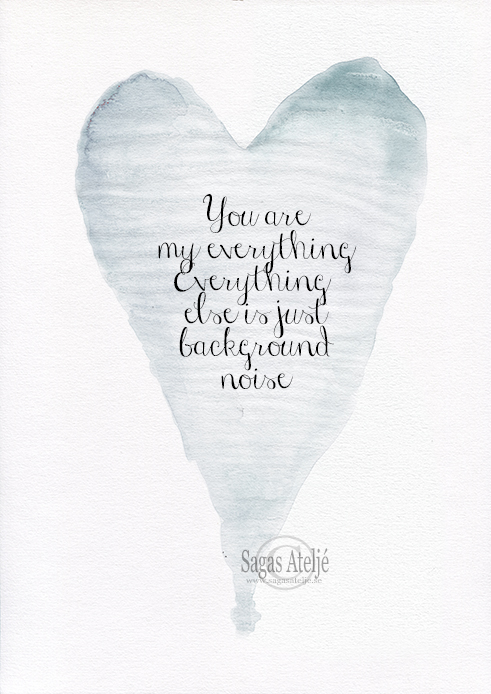 You are
my everything
Everything
else is just
background
noise
Sagas Ateljé
www.sagasatelje.se